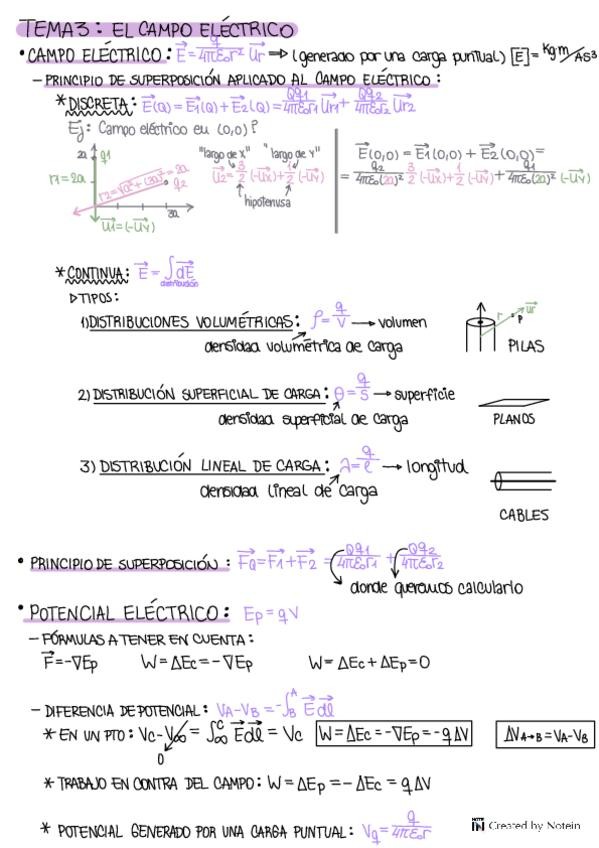 TEMA 3 : EL CAMPO ELÉCTRICO
• CAMPO ELÉCTRICO : E⃗ = q/4πε₀r² u⃗r ⇒ (generado por una carga puntual) [E⃗] = Kg·m/As³
– PRINCIPIO DE SUPERPOSICIÓN APLICADO AL CAMPO ELÉCTRICO :
* DISCRETA : E⃗(Q) = E⃗1(Q) + E⃗2(Q) = Qq1/4πε₀r1 u⃗r1 + Qq2/4πε₀r2 u⃗r2
Ej : Campo eléctrico en (0,0) ?
2a q1
r1 = 2a
r2 = √a² + (3a)² = 2a
q2
3a
u⃗1 = (-u⃗y)
"largo de x" "largo de y"
u⃗2 = 3/2 (-u⃗x) + 1/2 (-u⃗y)
hipotenusa
E⃗(0,0) = E⃗1(0,0) + E⃗2(0,0) =
= q2/4πε₀(2a)² 3/2 (-u⃗x) + 1/2 (-u⃗y) + q1/4πε₀(2a)² (-u⃗y)
* CONTINUA : E⃗ = ∫ dE⃗
distribución
▷ TIPOS :
1) DISTRIBUCIONES VOLUMÉTRICAS : ρ = q/V → volumen
densidad volumétrica de carga
u⃗r
r
P
PILAS
2) DISTRIBUCIÓN SUPERFICIAL DE CARGA : θ = q/S → superficie
densidad superficial de carga
PLANOS
3) DISTRIBUCIÓN LINEAL DE CARGA : λ = q/l → longitud
densidad lineal de carga
CABLES
• PRINCIPIO DE SUPERPOSICIÓN : F⃗Q = F⃗1 + F⃗2 = Qq1/4πε₀r1 + Qq2/4πε₀r2
donde queramos calcularlo
• POTENCIAL ELÉCTRICO : Ep = qV
– FÓRMULAS A TENER EN CUENTA :
F⃗ = -∇Ep W = ΔEc = -∇Ep W = ΔEc + ΔEp = 0
– DIFERENCIA DE POTENCIAL : VA - VB = -∫ᴬB E⃗ dl⃗
* EN UN PTO : Vc - V∞ = ∫ᶜ∞ E⃗ dl⃗ = Vc W = ΔEc = -∇Ep = -qΔV ΔVA→B = VA - VB
0
* TRABAJO EN CONTRA DEL CAMPO : W = ΔEp = -ΔEc = qΔV
* POTENCIAL GENERADO POR UNA CARGA PUNTUAL : Vq = q/4πε₀r
Created by Notein